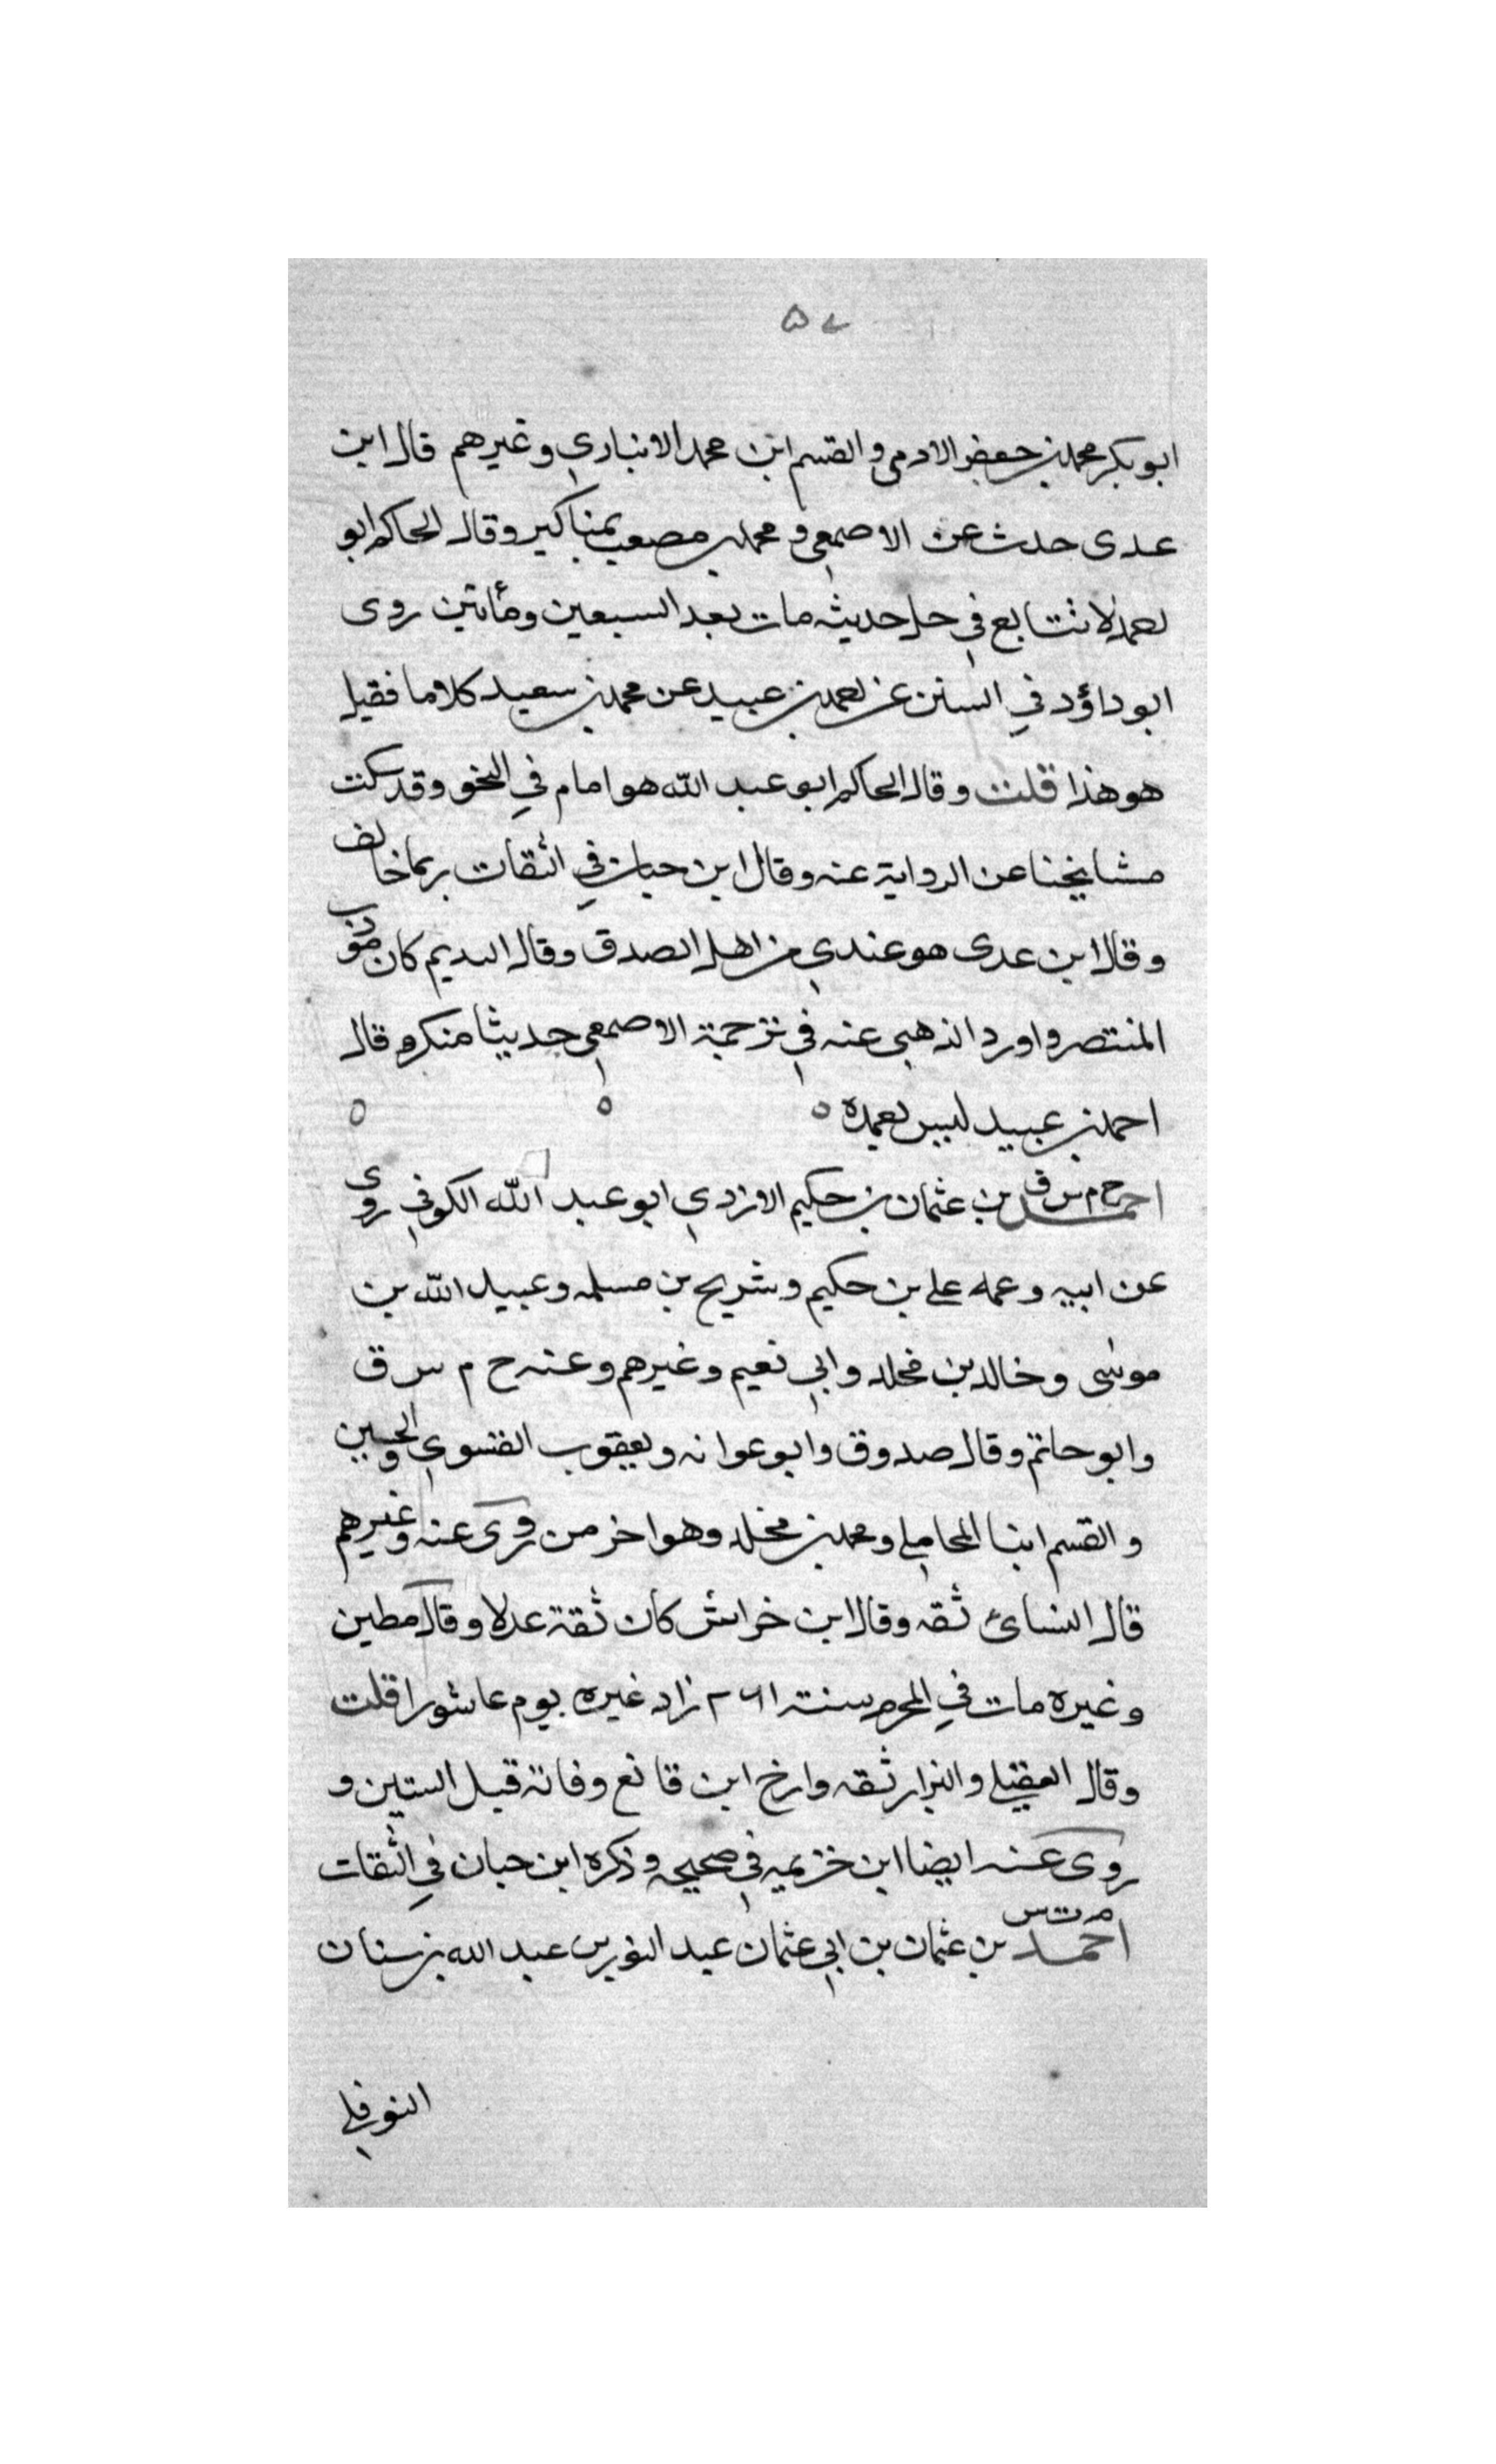 ٥٧
ابو بكر محمد بن جعفر الادمي والقسم ابن محمد الانباري وغيرهم قال ابن
عدى حدث عن الاصمعي ومحمد بن مصعب بمناكير وقال الحاكم ابو
لا نتابع في جل حديثه مات بعد السبعين ومأتين روى
ابو داؤد في السنن عن احمد بن عبيد عن محمد بن سعيد كلاما فقيل
هو هذا قلت وقال الحاكم ابو عبد الله هو امام في النحو وقد سكت
مشايخنا عن الرواية عنه وقال ابن حبان في الثقات ربما خالف
وقال ابن عدى هو عندي من اهل الصدق وقال النديم كان مؤدب
المنتصر واورد الذهبي عنه في ترجمة الاصمعي حديثا منكر وقال
احمد بن عبيد ليس بعمدة ٥ ٥ ٥
احمد خ م س ق بن عثمان بن حكيم الازدي ابو عبد الله الكوفي روى
عن ابيه وعمه علي بن حكيم وشريح بن مسلمه وعبيد الله بن
موسى وخالد بن مخلد وابي نعيم وغيرهم وعنه خ م س ق
وابو حاتم وقال صدوق وابو عوانه ويعقوب الفسوي والحسين
والقسم ابنا المحاملي ومحمد بن مخلد وهو اخر من روى عنه وغيرهم
قال النسائ ثقه وقال ابن خراش كان ثقة عدلا وقال مطين
وغيره مات في المحرم سنة ٢٦١ زاد غيره يوم عاشورا قلت
وقال العقيلي والبزار ثقه وارخ ابن قانع وفاته قبل الستين و
روى عنه ايضا ابن خزيمه في صحيحه وذكره ابن حبان في الثقات
احمد م ت س بن عثمان بن ابي عثمان عبد النور بن عبد الله بن سنان
النوفلي